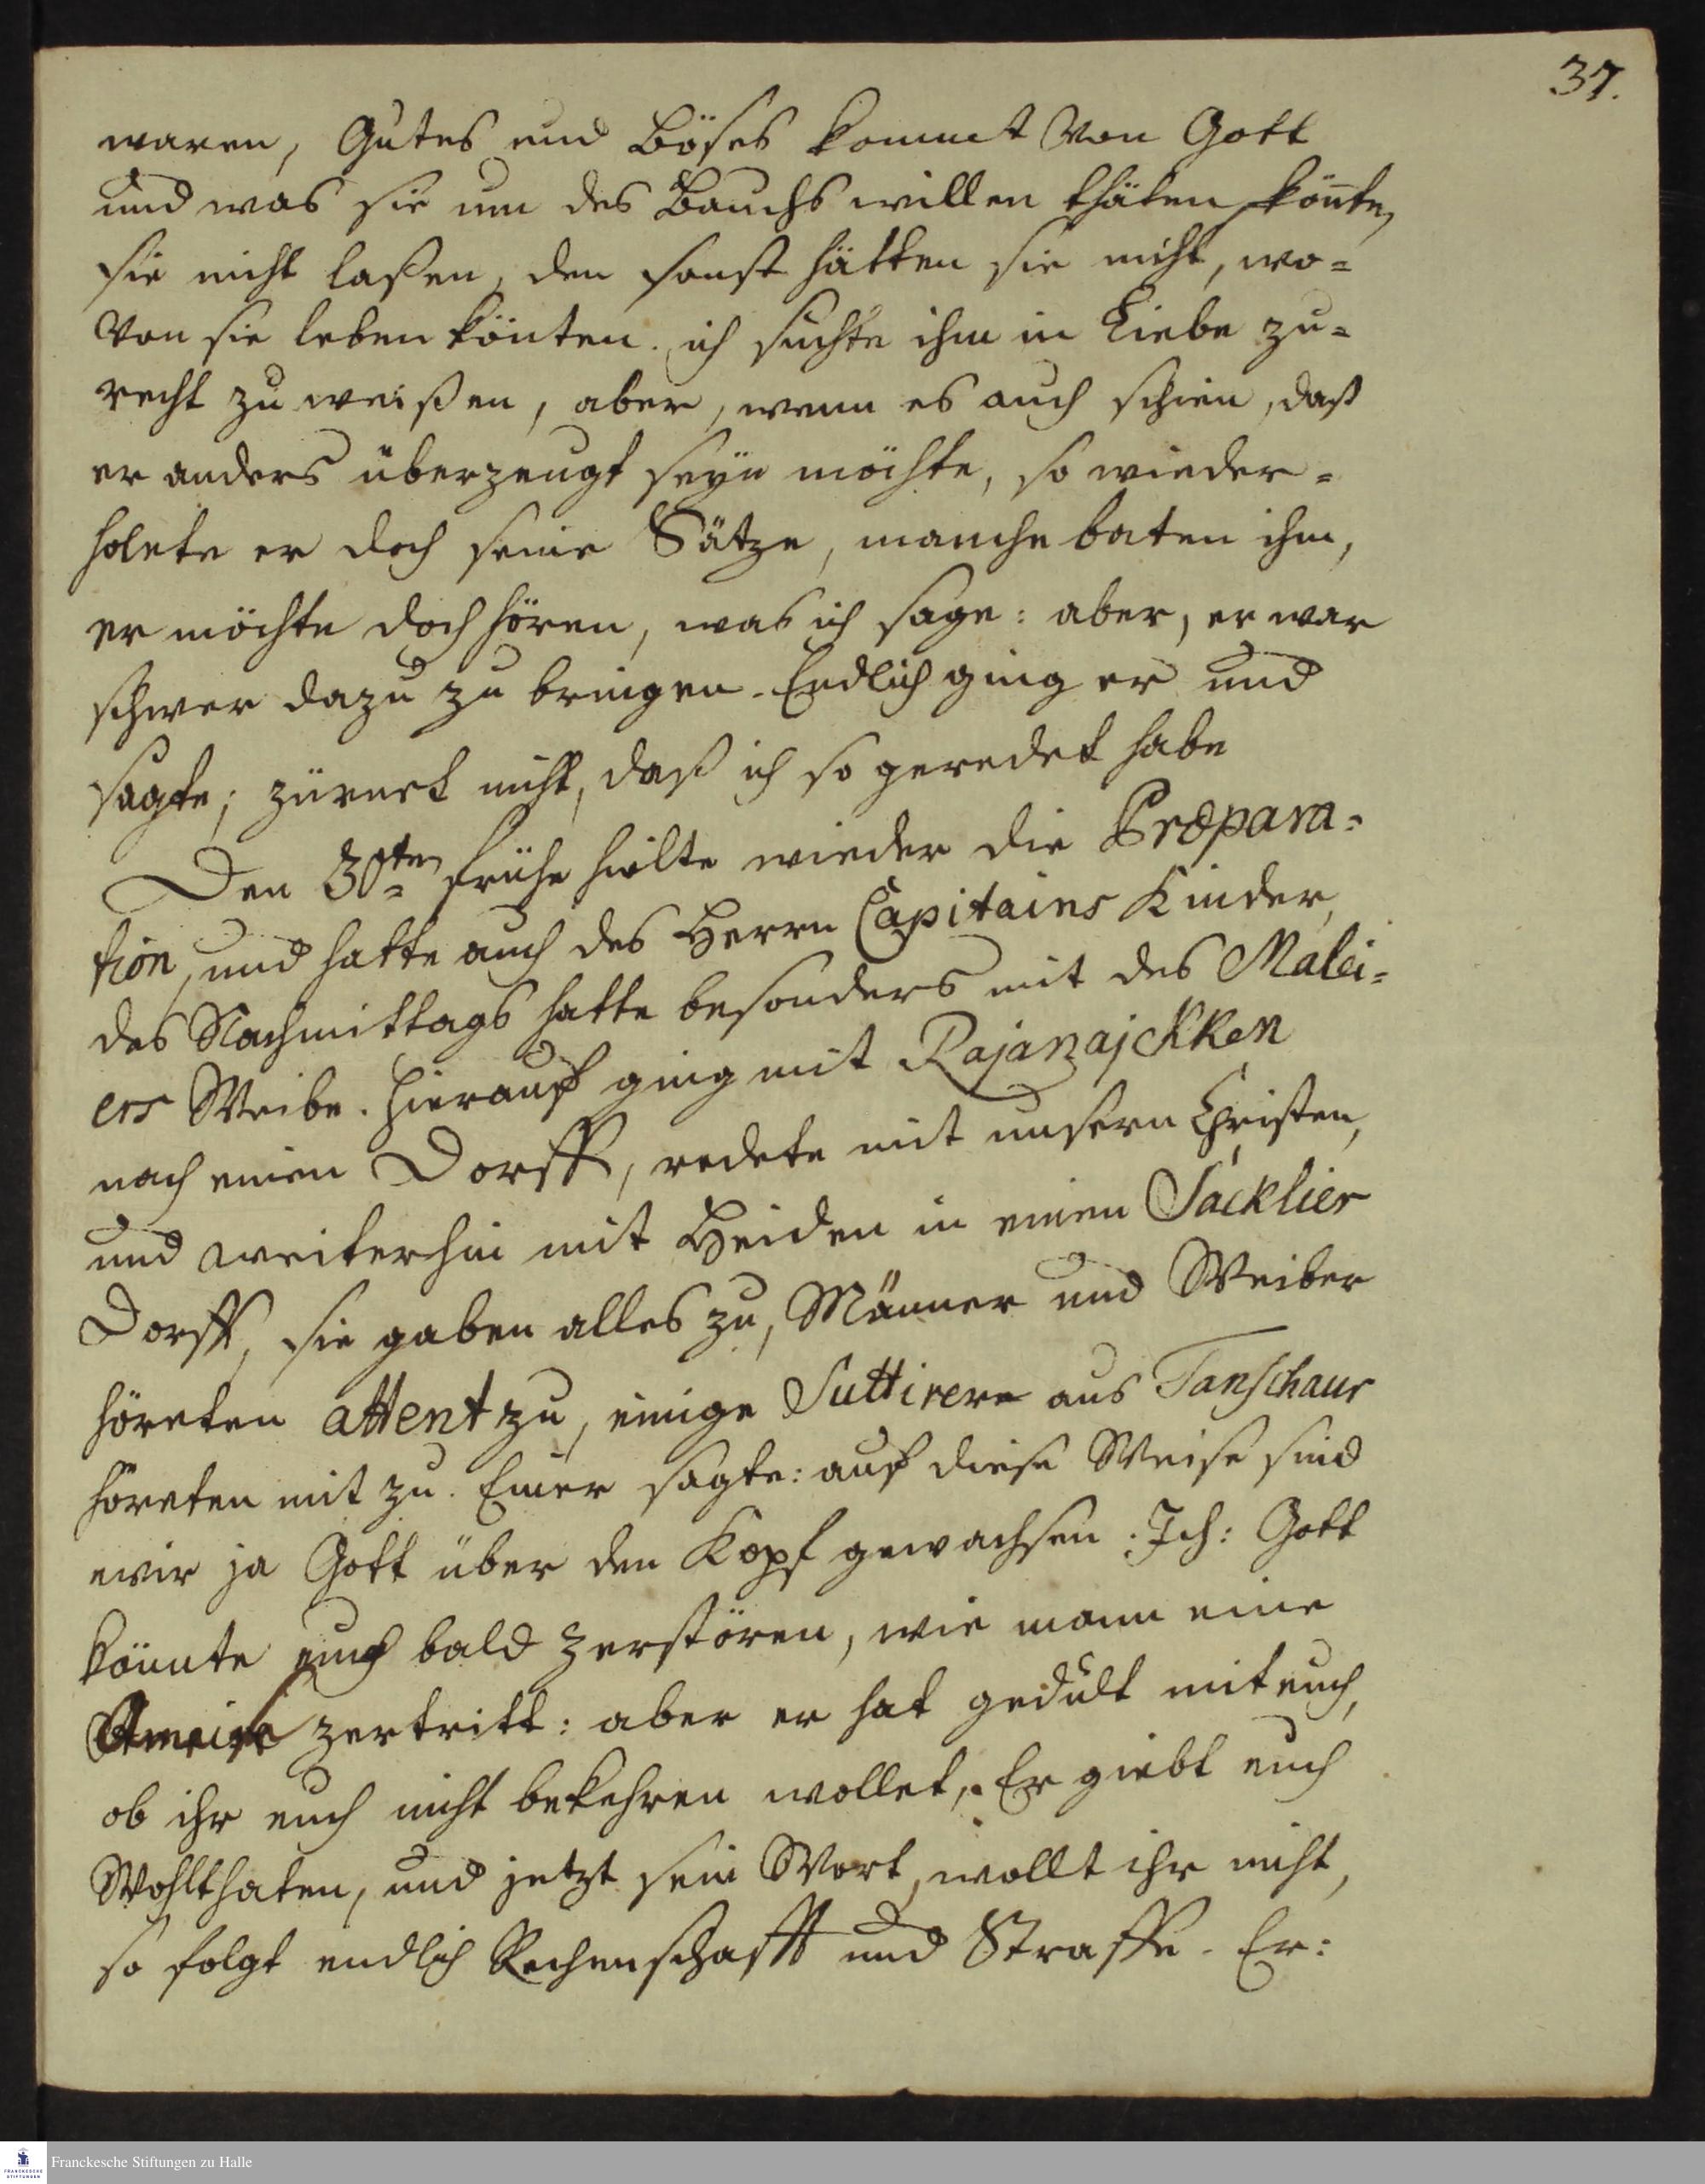 37.
waren, Gutes und Böses kommt von Gott
und was sie um des Bauchs willen thäten, könten
sie nicht laßen, den sonst hätten sie nicht, wo=
von sie leben könten. ich suchte ihm in Liebe zu=
recht zu weißen, aber, wenn es auch schien, daß
er anders überzeugt seÿn möchte, so wieder=
holete er doch seine Sätze, manche baten ihm,
er möchte doch hören, was ich sage: aber, er war
schwer dazu zu bringen. Endlich ging er und
sagte; zürnet nicht, daß ich so geredet habe
Den 30ten frühe hielte wieder die Præpara=
tion, und hatte auch des Herrn Capitains Kinder,
des Nachmittags hatte besonders mit des Malei=
ers Weibe. hierauf ging mit Rajanajckken
nach einen Dorff, redete mit unsern Christen,
und weiterhin mit Heiden in einem Sacklier
Dorff, sie gaben alles zu, Männer und Weiber
höreten attent zu, einige Suttirere aus Tanschaur
höreten mit zu. Einer sagte: auf diese Weise sind
wir ja Gott über den Kopf gewachsen. Ich: Gott
könnte euch bald zerstören, wie mann eine
Ameise zertritt: aber er hat gedult mit euch,
ob ihr euch nicht bekehren wollet,. Er giebt euch
Wohlthaten, und jetzt sein Wort, wollt ihr nicht,
so folgt endlich Rechenschafft und Straffe. Er:
Franckesche Stiftungen zu Halle